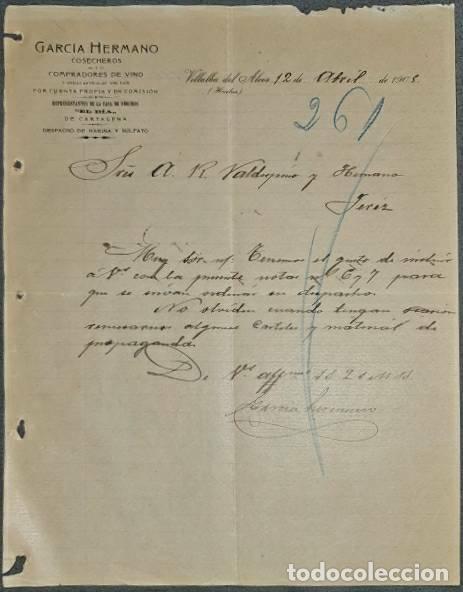 GARCÍA HERMANO
COSECHEROS
Y
COMPRADORES DE VINO
POR CUENTA PROPIA Y EN COMISIÓN
REPRESENTANTES DE LA CASA DE
"EL DÍA"
DE CARTAGENA
DESPACHO DE HARINA Y SULFATO
Villalba del Alcor 12 de Abril de 1905
(Huelva)
261
Sres A. R. Valdespino y Hermano
Jerez
Muy Sor. ntro: Tenemos el gusto de
á Vs con la presente nota nº 6 y 7 para
que se sirvan ordenar su despacho.
No olviden cuando tengan
remesarnos algunos Carteles y material de
propaganda.
De Vs affmos S.S.
García Hermano
todocoleccion.net